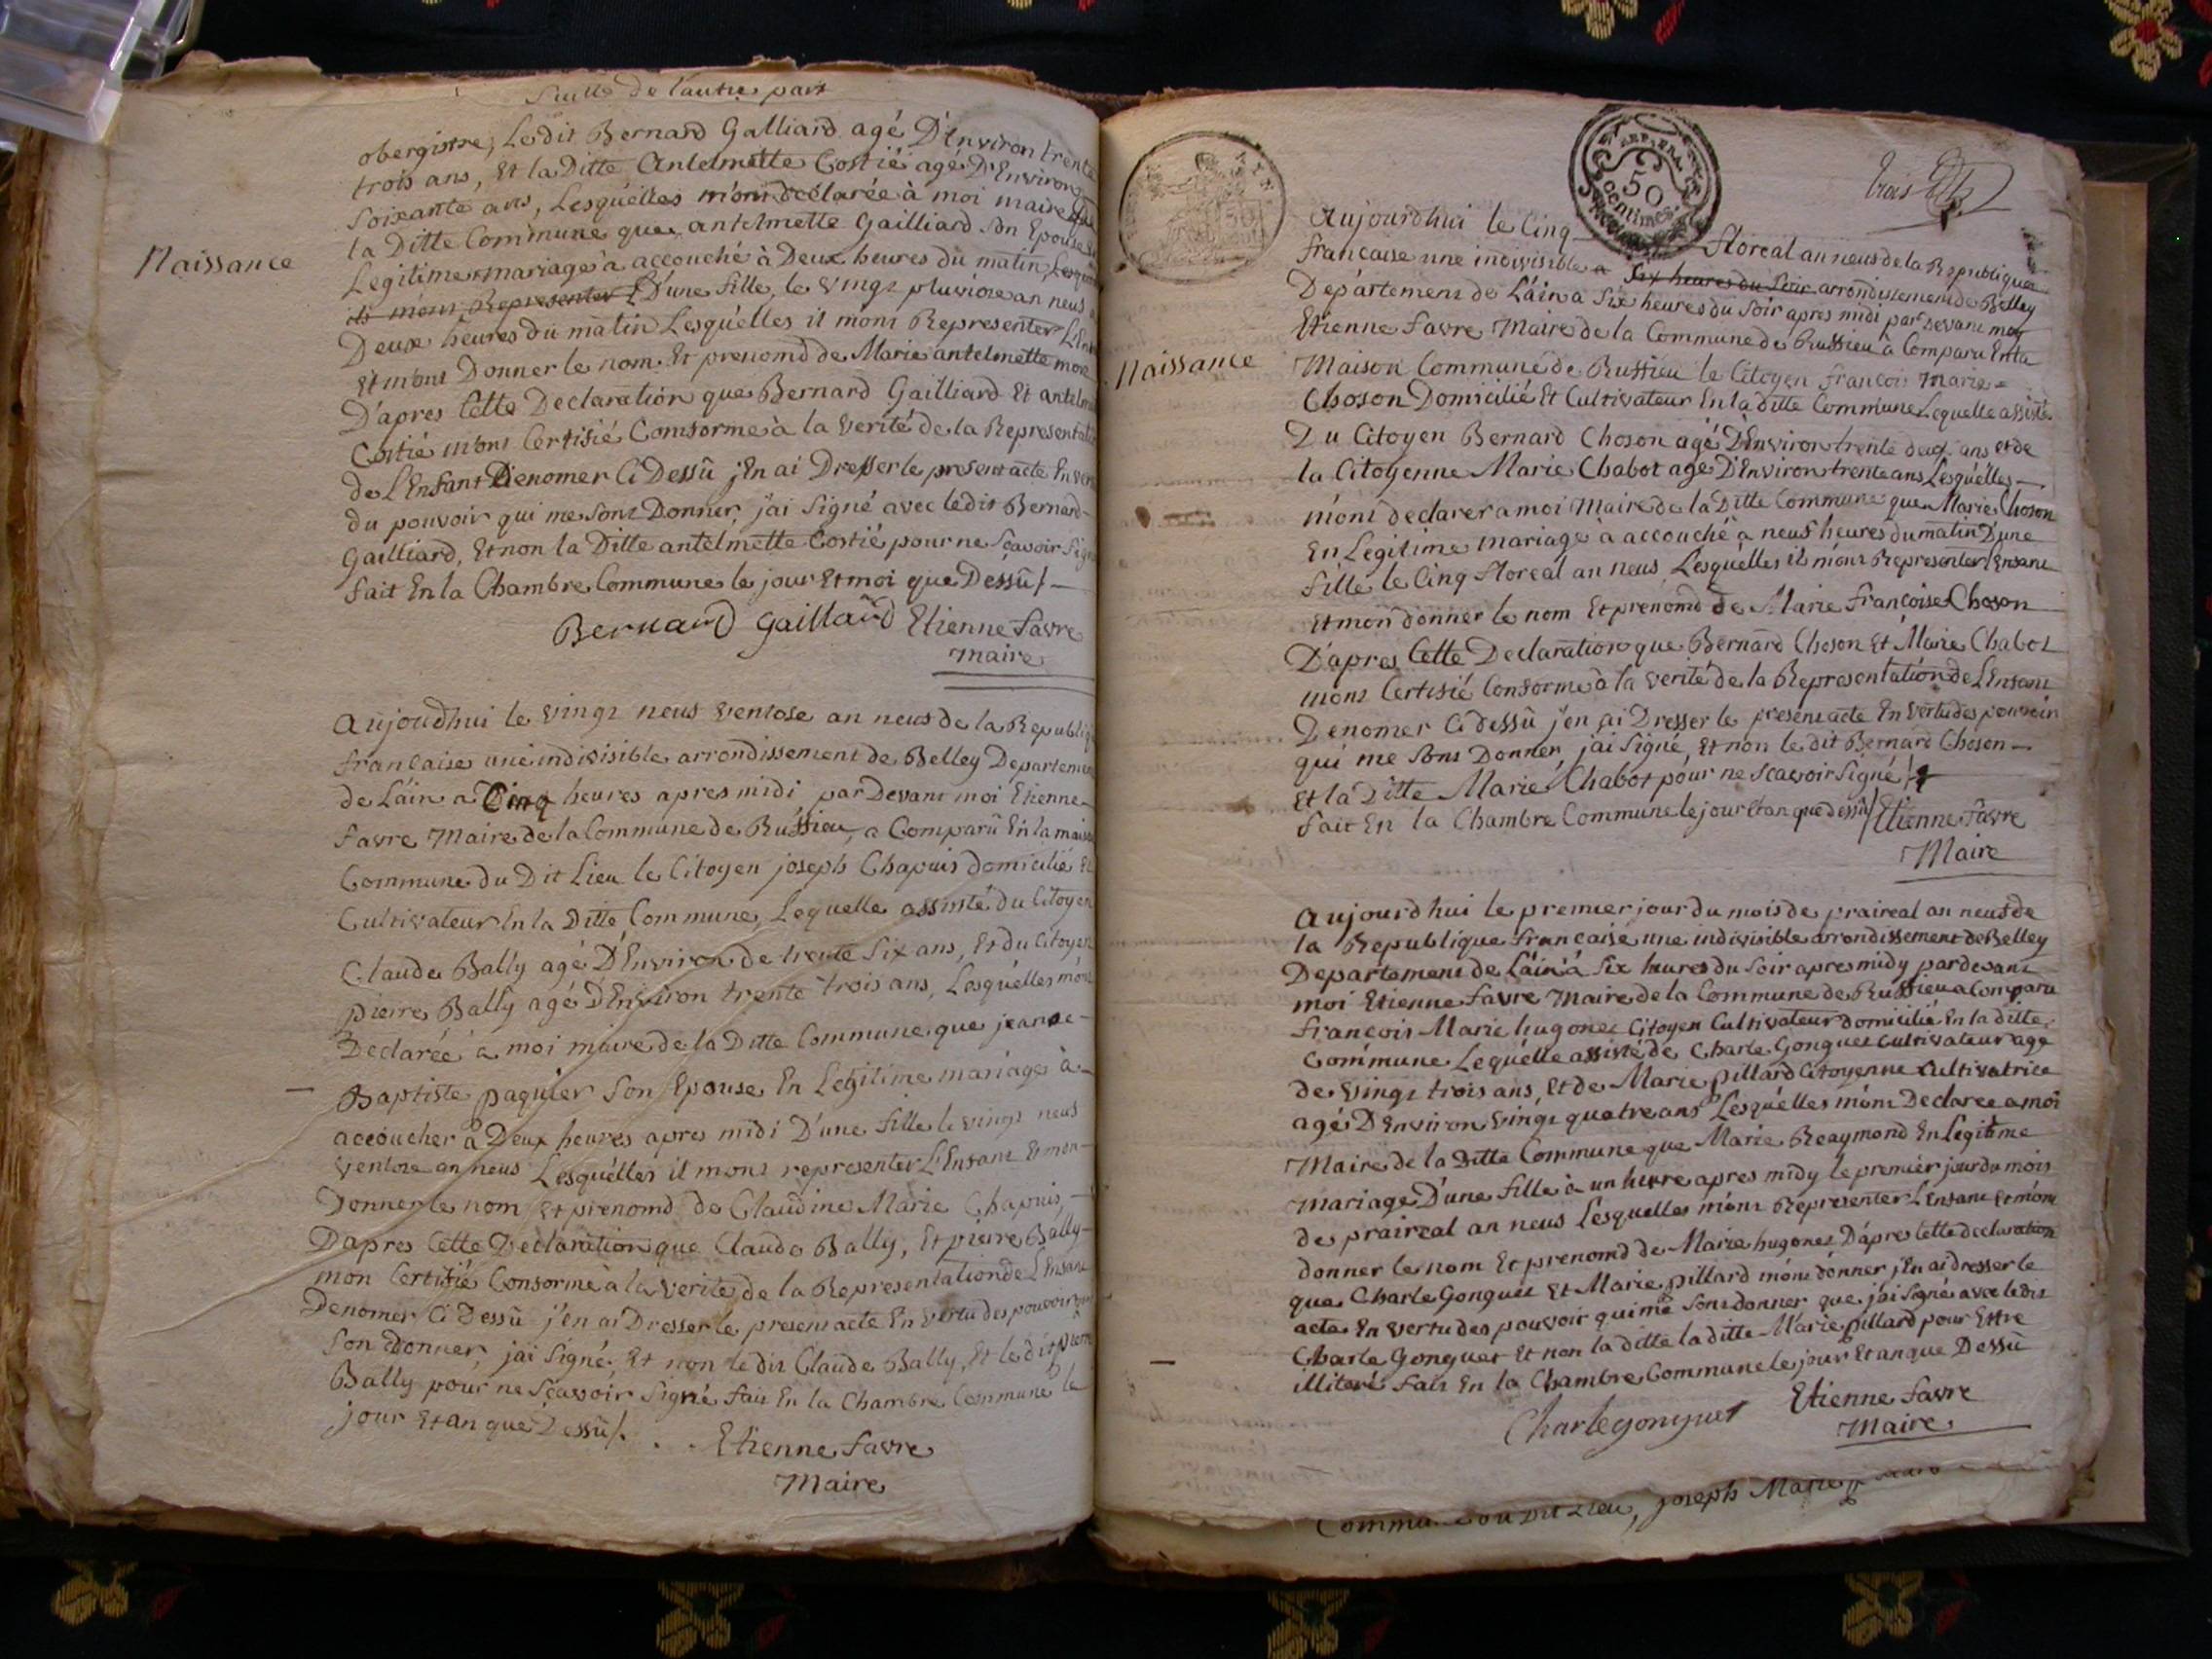 Suitte de l'autre part
obergistre, Le dit Bernard Galliard agé D'Environ trente
trois ans, Et la Ditte Antelmette Costié agé D'Environ
Soixante ans, Lesquélles m'ont declarée à moi maire
la Ditte Commune que antelmette Gailliard Son Epouse
Legitime mariage à accouché à Deux heures du matin
ils m'ont Representer D'une fille, le vingt pluviose an neus
Deux heures du matin Lesquélles il m'ont Representer
Et m'ont Donner le nom Et prenomd de Marie antelmette
D'apres Cette Declaration que Bernard Gailliard Et
Costié m'ont Certifié Comforme à la verité de la
de L'Enfant Denomer Ci Dessû j'En ai Dresser le present acte
du pouvoir qui me sont Donner, j'ai Signé avec le dit Bernard
Gailliard, Et non la Ditte antelmette Costié pour ne Scavoir
fait En la Chambre Commune le jour Et moi que Dessû /
Naissance
Bernard Gaillard Etienne favre
maire
aujoudhui le vingt neus ventose an neus de la
francaise une indivisible arrondissement de Belley
de L'ain a Cinq heures apres midi par Devant moi Etienne
favre Maire de la Commune de Russieu, a Comparû En la
Commune du Dit Lieu le Citoyen joseph Chapuis domicilié
Cultivateur En la Ditte Commune, Lequelle assisté du Citoyen
Claude Bally agé D'Environ de trente Six ans, Et du Citoyen
pierre Bally agé D'Environ trente trois ans, Lesquélles
Declarée a moi maire de la Ditte Commune que jeanne
Baptiste paquier Son Epouse En Legitime mariage à
accoucher à Deux heures apres midi D'une fille le vingt neus
ventose an neus Lesquélles il mont representer L'Enfant Et mon
Donner le nom Et prenomd de Claudine Marie Chapuis,
D'apres Cette Declaration que Claude Bally, Et pierre Bally
mon Certifié Conforme à la verité de la Representation de L'Enfant
Denomer Ci Dessû j'en ai Dresser le present acte En vertu des pouvoir
Son donner, jai Signé Et non le dit Claude Bally, Et le dit
Bally pour ne Scavoir Signé fait En la Chambre Commune le
jour Et an que Dessû /.
Etienne favre
Maire
REP. FRA
50
centimes
trois
aujourdhui le Cinq floreal an neus de la Republique
francaise une indivisible a Six heures du Soir arrondissement de Belley
Departement de L'ain a Six heures du Soir apres midi par Devant moy
Etienne favre Maire de la Commune de Russieu à Comparu En la
Naissance
Maison Commune de Russieu le Citoyen francois Marie
Choson Domicilié Et Cultivateur En la ditte Commune Lequelle assisté
Du Citoyen Bernard Choson agé D'Environ trente deux ans et de
la Citoyenne Marie Chabot agé D'Environ trente ans Lesquélles
mont declarer a moi Maire de la Ditte Commune que Marie Choson
En Legitime mariage à accouché à neus heures du matin D'une
fille le Cinq floreal an neus, Lesquélles il mont Representer L'Enfant
Et mon donner le nom Et prenomd de Marie francoise Choson
D'apres Cette Declaration que Bernard Choson Et Marie Chabot
mont Certifié Conforme à la verité de la Representation de L'Enfant
Denomer Ci dessû j'en ai Dresser le present acte En vertu des pouvoir
qui me Sont Donner, jai Signé, Et non le dit Bernard Choson
Et la Ditte Marie Chabot pour ne Scavoir Signé /
fait En la Chambre Commune le jour Et an que dessû / Etienne favre
Maire
aujourd hui le premier jour du mois de praireal an neus de
la Republique francaise une indivisible arrondissement de Belley
Departement de L'ain à Six heures du Soir apres midy par devant
moi Etienne favre Maire de la Commune de Russieu a Comparu
francois Marie hugonet Citoyen Cultivateur domicilié En la ditte
Commune Lequélle assisté de Charle Gonguet Cultivateur age
de vingt trois ans, Et de Marie pillard Citoyenne Cultivatrice
agé D'Environ vingt quatre ans Lesquélles mónt Declaree a moi
Maire de la Ditte Commune que Marie Reaymond En Legitime
mariage D'une fille à un heure apres midy le premier jour du mois
de praireal an neus Lesquelles mónt Representer L'Enfant Et mónt
donner le nom Et prenomd de Marie hugonet D'apres Cette declaration
que Charle Gonguet Et Marie pillard mónt donner j'En ai dresser le
acte En vertu des pouvoir qui me Sont donner que j'ai Signé avec le dit
Charle Gonguet Et non la ditte la ditte Marie pillard pour Estre
illiteré fait En la Chambre Commune le jour Et an que Dessû
Charlegonguet Etienne favre
Maire
Commune du Dit Lieu, joseph Marie